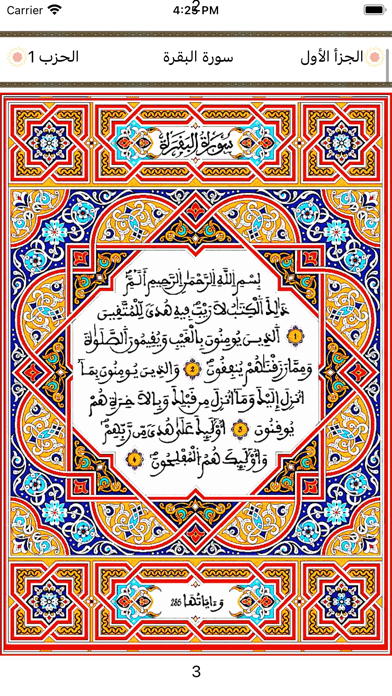 Carrier 4:25 PM
2
الجزأ الأول سورة البقرة الحزب 1
سورة البقرة
بسم الله الرحمن الرحيم ألم
ذلك الكتب لا ريب فيه هدى للمتقين
1 الذين يومنون بالغيب ويقيمون الصلوة
ومما رزقنهم ينفقون 2 والذين يومنون بما
أنزل إليك وما أنزل من قبلك وبالاخرة هم
يوقنون 3 أوليك على هدى من ربهم
وأوليك هم المفلحون 4
وءاياتها 286
3